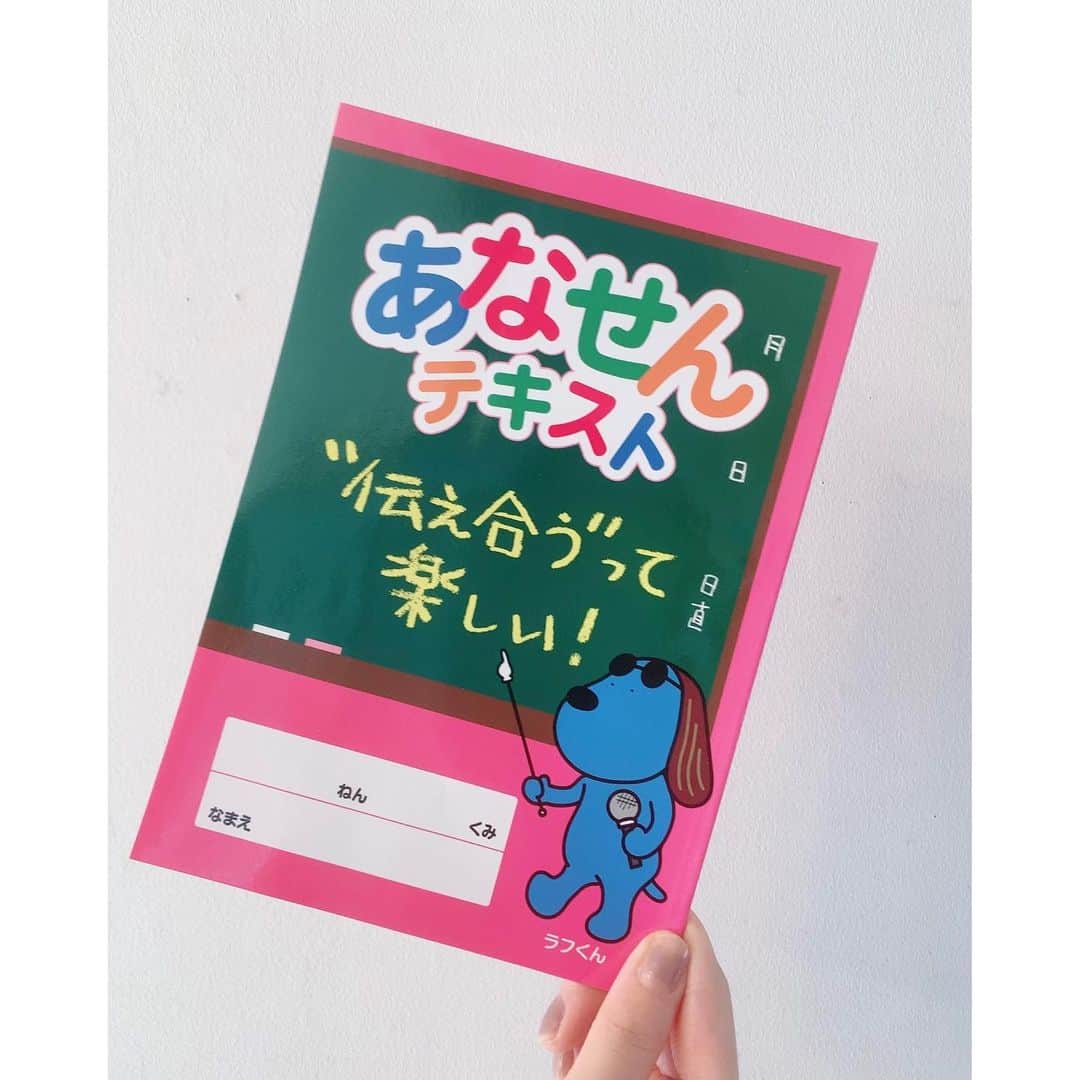 あなせん
テキスト
"伝え合う"って
楽しい!
月
日
日直
ねん
くみ
なまえ
ラフくん